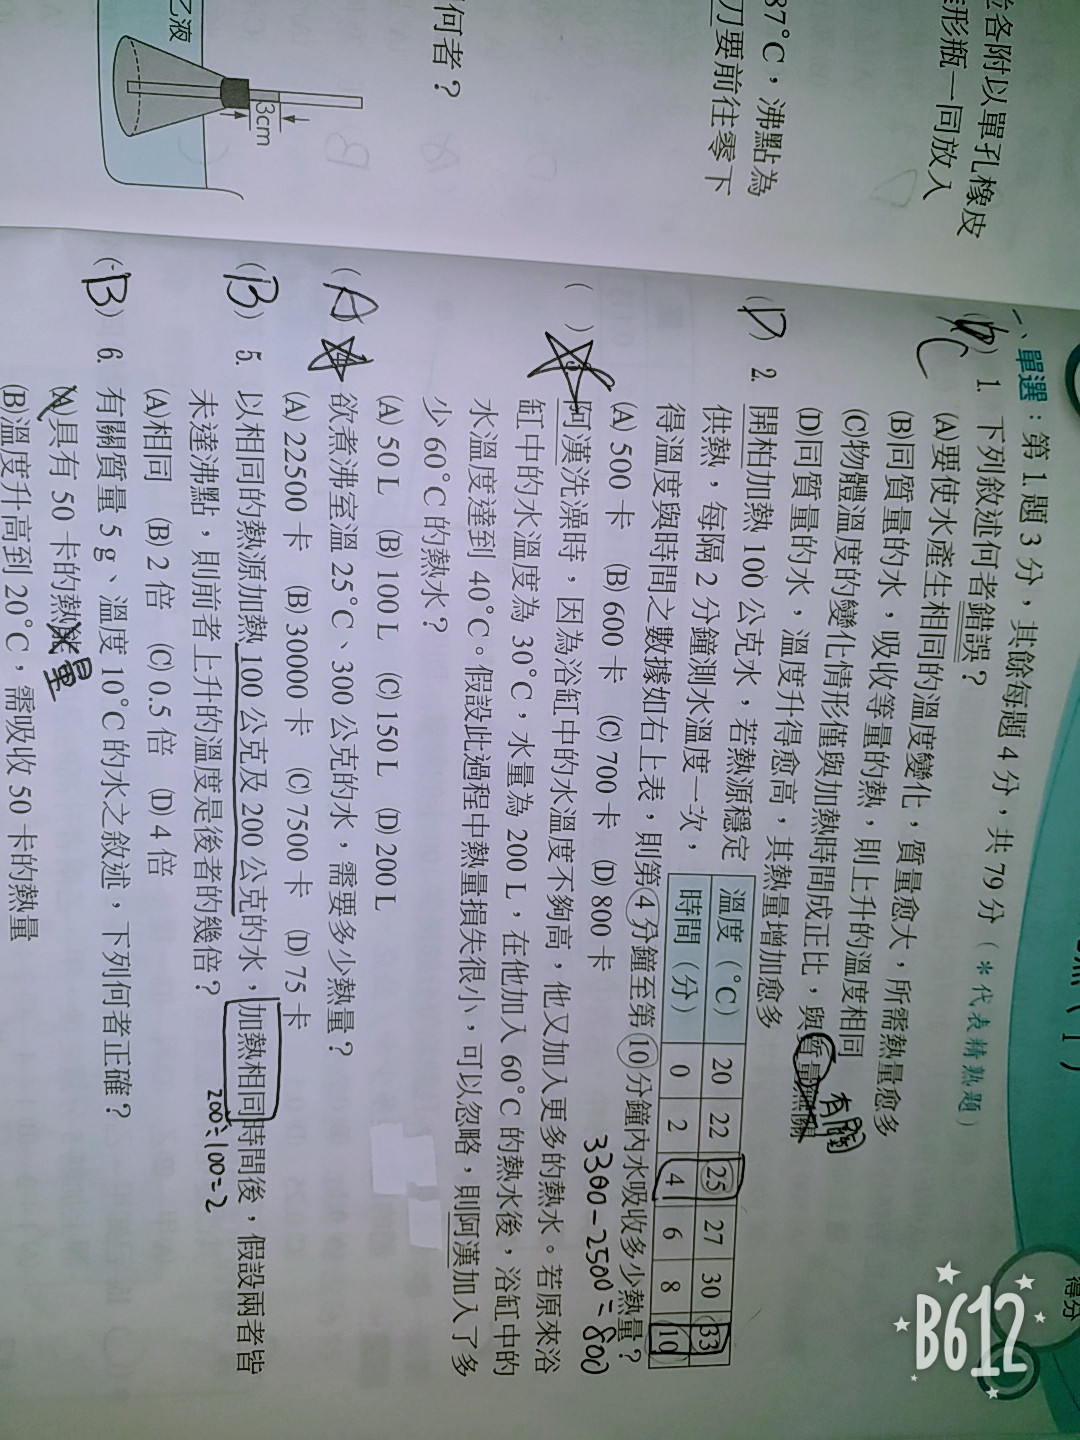 各附以單孔橡皮
形瓶一同放入
87°C，沸點為
刀要前往零下
何者？
乙液
3cm
一、單選：第1.題3分，其餘每題4分，共79分（＊代表精熟題）
得分
C
( ) 1. 下列敘述何者錯誤？
(A)要使水產生相同的溫度變化，質量愈大，所需熱量愈多
(B)同質量的水，吸收等量的熱，則上升的溫度相同
(C)物體溫度的變化情形僅與加熱時間成正比，與質量無關
有關
(D)同質量的水，溫度升得愈高，其熱量增加愈多
(D) 2. 開柏加熱100公克水，若熱源穩定
供熱，每隔2分鐘測水溫度一次，
得溫度與時間之數據如右上表，則第4分鐘至第10分鐘內水吸收多少熱量？
溫度（°C） 20 22 25 27 30 33
時間（分） 0 2 4 6 8 10
(A) 500卡 (B) 600卡 (C) 700卡 (D) 800卡
3300-2500=800
( ) 阿漢洗澡時，因為浴缸中的水溫度不夠高，他又加入更多的熱水。若原來浴
缸中的水溫度為30°C，水量為200L，在他加入60°C的熱水後，浴缸中的
水溫度達到40°C。假設此過程中熱量損失很小，可以忽略，則阿漢加入了多
少60°C的熱水？
(A) 50L (B) 100L (C) 150L (D) 200L
(A) 欲煮沸室溫25°C、300公克的水，需要多少熱量？
(A) 22500卡 (B) 30000卡 (C) 7500卡 (D) 75卡
(B) 5. 以相同的熱源加熱100公克及200公克的水，加熱相同時間後，假設兩者皆
未達沸點，則前者上升的溫度是後者的幾倍？
200÷100=2
(A)相同 (B) 2倍 (C) 0.5倍 (D) 4倍
(B) 6. 有關質量5g、溫度10°C的水之敘述，下列何者正確？
(A)具有50卡的熱
量
(B)溫度升高到20°C，需吸收50卡的熱量
B612